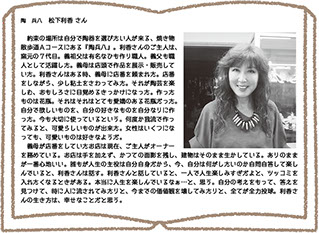 陶 兵八 松下利香 さん
約束の場所は自分で陶器を選びたい人が来る、焼き物
散歩道Aコースにある『陶兵八』。利香さんのご主人は、
窯元の7代目。義祖父は有名なかも作り職人。義父も職
人として活躍した。義母は店頭で作品を展示・販売して
いた。利香さんはある時、義母に店番を頼まれた。店番
をしながら、少し粘土をさわってみた。それが陶芸を楽
しむ、おもしろさに目覚めるきっかけになった。作った
ものは花瓶。それはそれはとても愛嬌のある花瓶だった。
自分で欲しいものを、自分の好きなものを自分なりに作
った。今も大切に使っているという。何度か我流で作っ
てみると、可愛らしいものが出来た。女性はいくつにな
っても、可愛いものは好きなようだ。
義母が店番をしていたお店は現在、ご主人がオーナー
を務めている。お店は手を加えず、かつての面影を残し、建物はそのまま生かしている。ありのまま
が一番心地いい。誰もが人生の主役は自分自身だから、今、自分は何がしたいのか自問自答して楽し
んでいると、利香さんは話す。利香さんと話していると、一人で人生楽しみすぎだよと、ツッコミを
入れたくなるときがある。本当に人生を楽しんでいるなぁ…と、思う。自分の考えをもって、答えを
見つけて、時に人に流されてみたりと、今までの価値観を壊してみたりと、全てが全力投球。利香さ
んの生き方は、幸せなことだと思う。